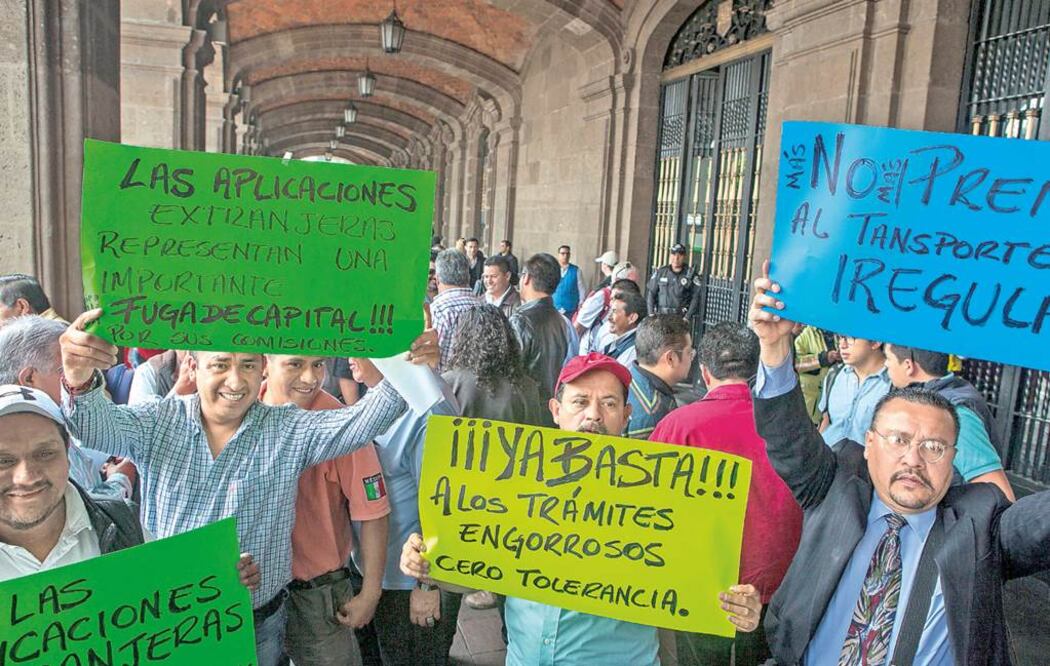 LAS APLICACIONES
EXTRANJERAS
REPRESENTAN UNA
IMPORTANTE
FUGA DE CAPITAL!!!
POR SUS COMISIONES.
MÁS NO MÁS PREM
AL TANSPORTE
IREGULA
¡¡¡YA BASTA!!!
A LOS TRÁMITES
ENGORROSOS
CERO TOLERANCIA.
LAS
ICACIONES
ANJERAS